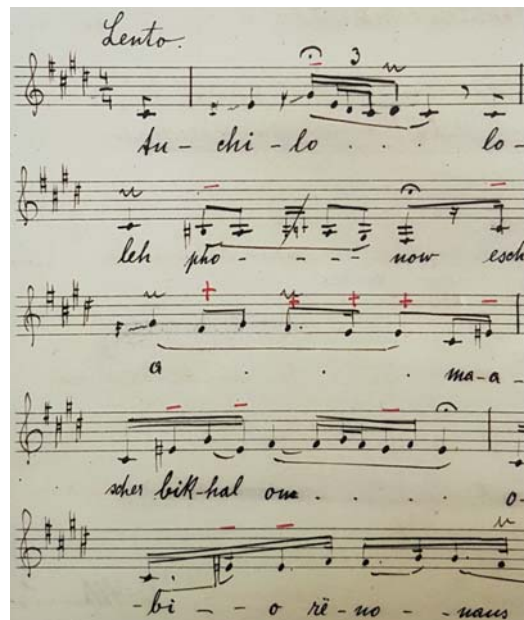 Lento.
3
tu- chi- lo . . . lo-
leh pho - - - - now esch
a . . . ma-a-
scher bik-hal om . . . . o-
-bi - - o rē-no - - naus